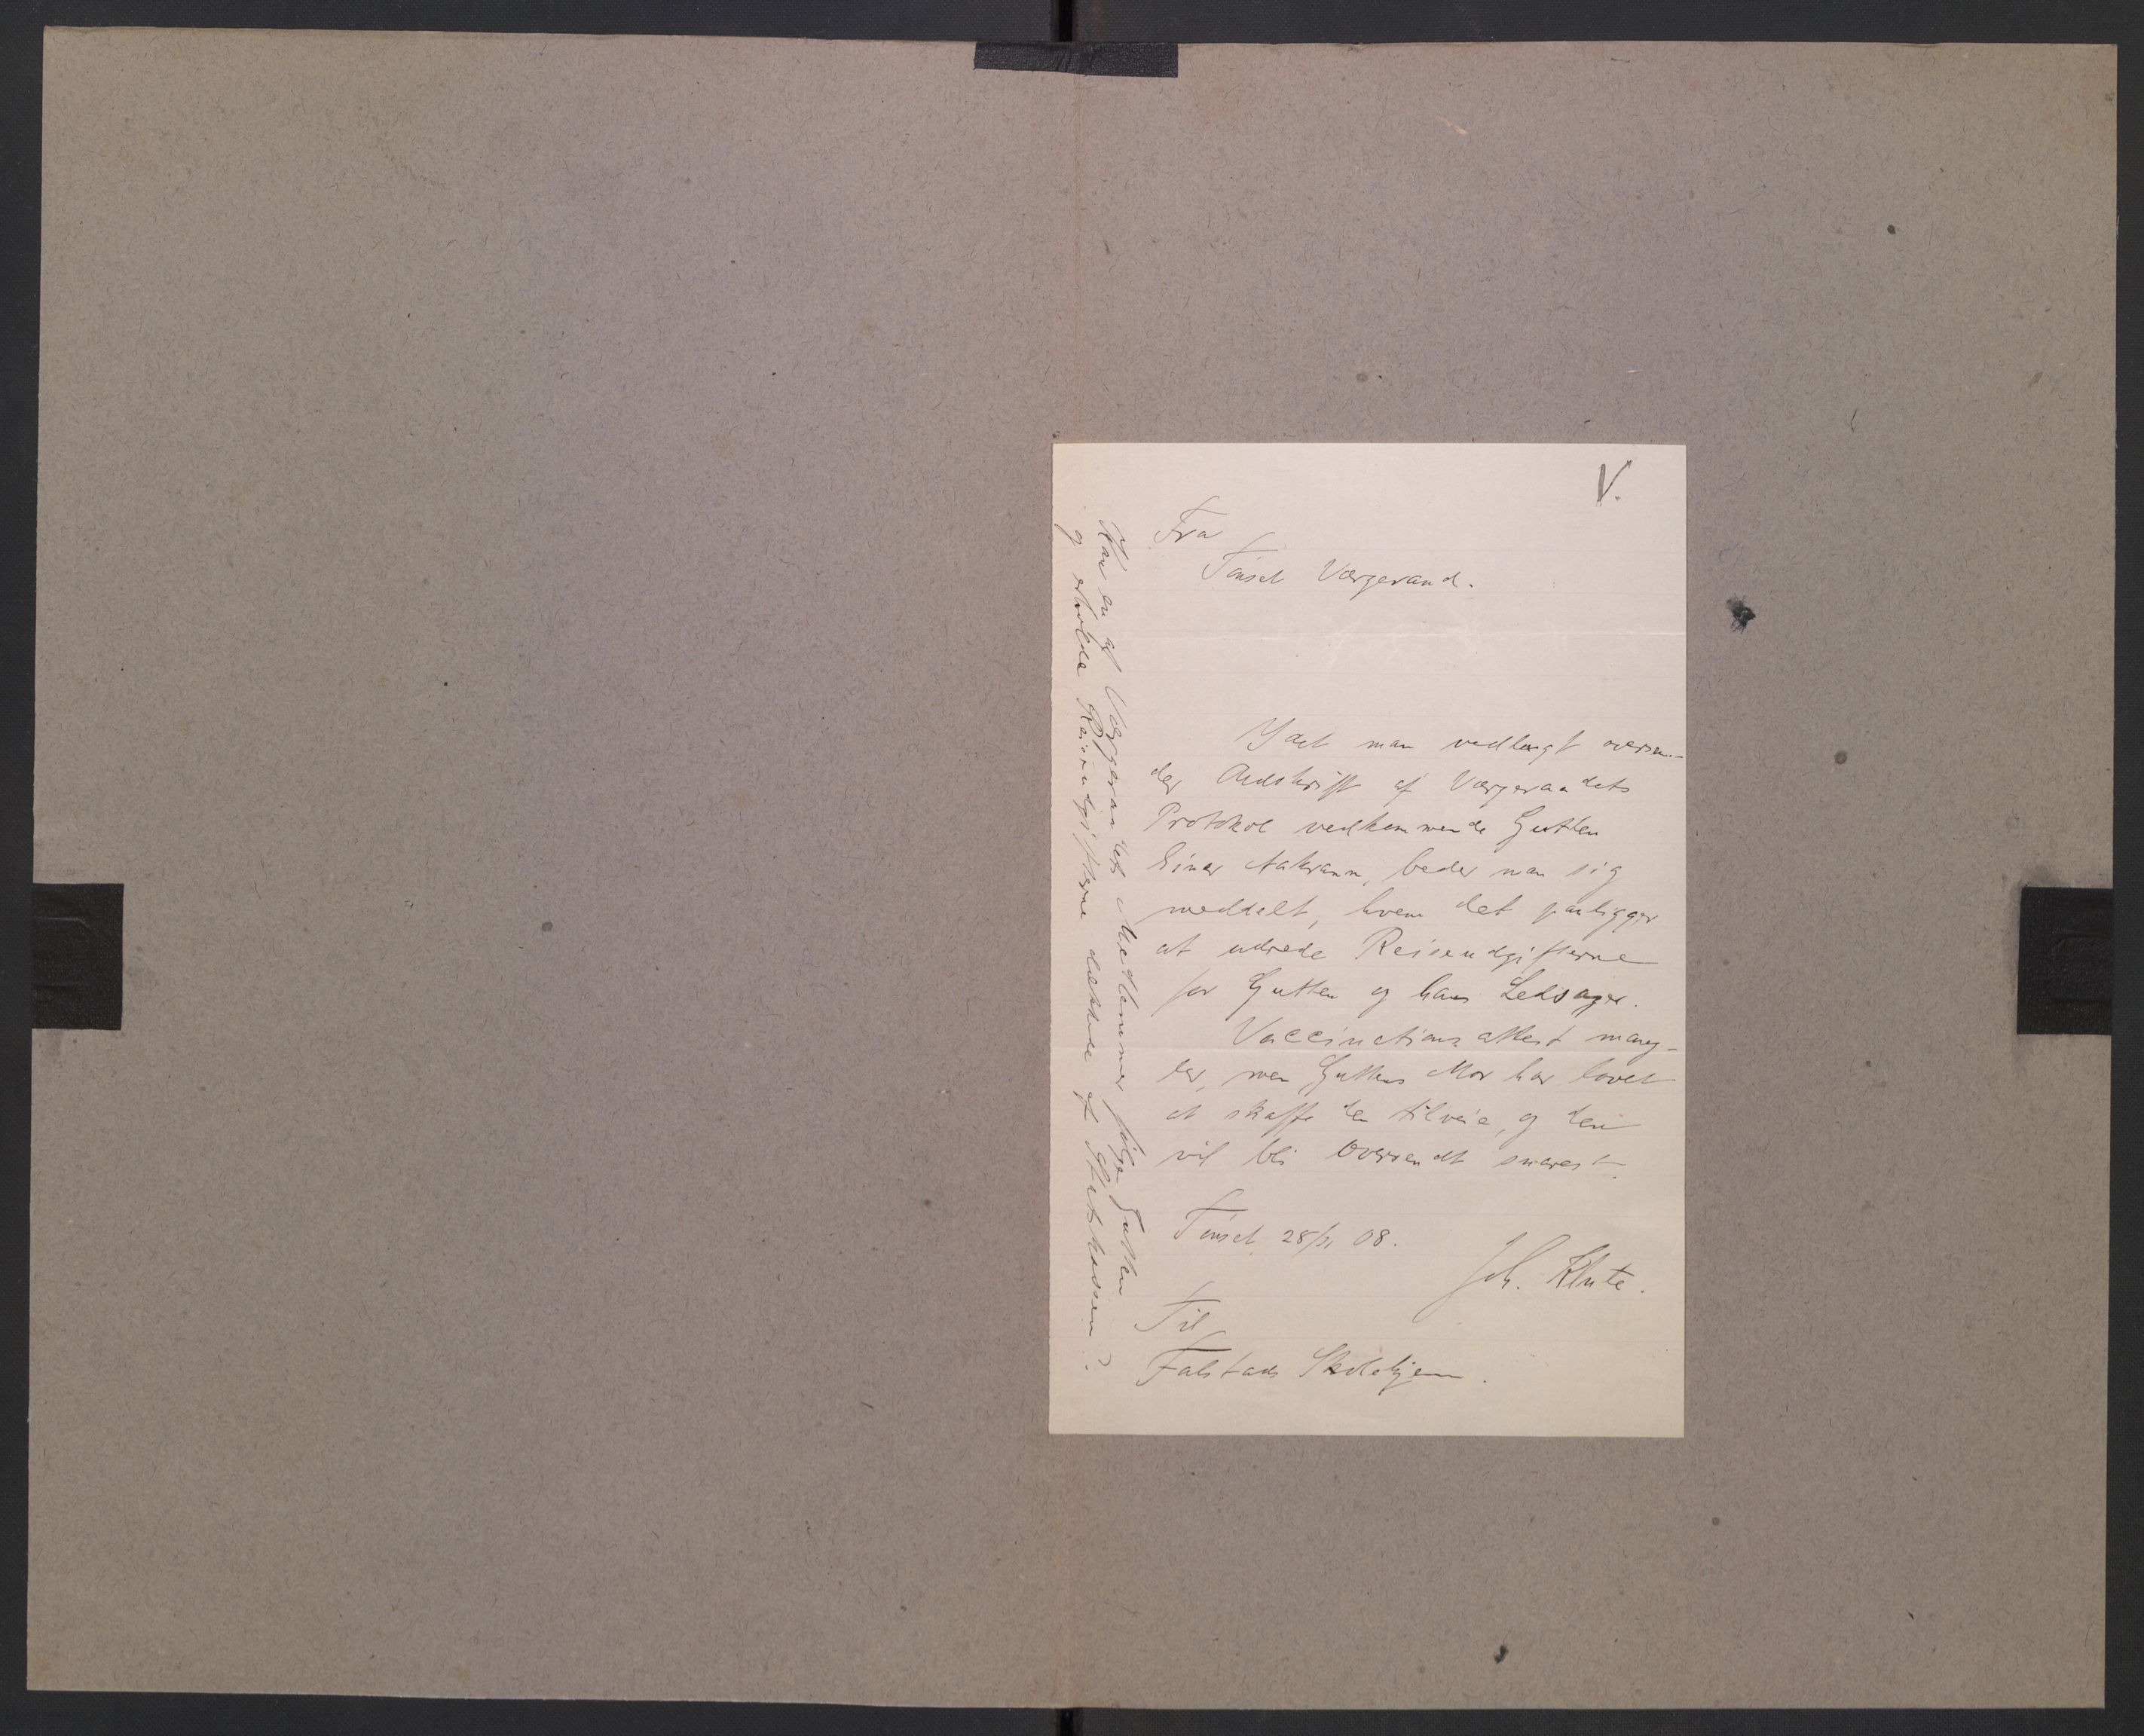 V.
Fra
Tönset Værgeraad.
Idet man vedlagt oversen-
der Audskrift af Værgeraadets
Protokol vedkommende Gutten
Einar Aakrann, beder man sig
meddelt, hvem det paaligger
at udrede Reiseudgifterne
for Gutten og hans Ledsager.
Vaccinationsattest mang-
ler, men Guttens Mor har lovet
at skaffe den tilveie, og den
vil bli oversendt snarest.
Tönset 28/11 08.
Joh. Klute.
Til
Falstads Skolehjem.
Kan en af Værgeraadets Medlemmer følge Gutten
og erholde Reiseudgifterne dækkede af Statskassen?